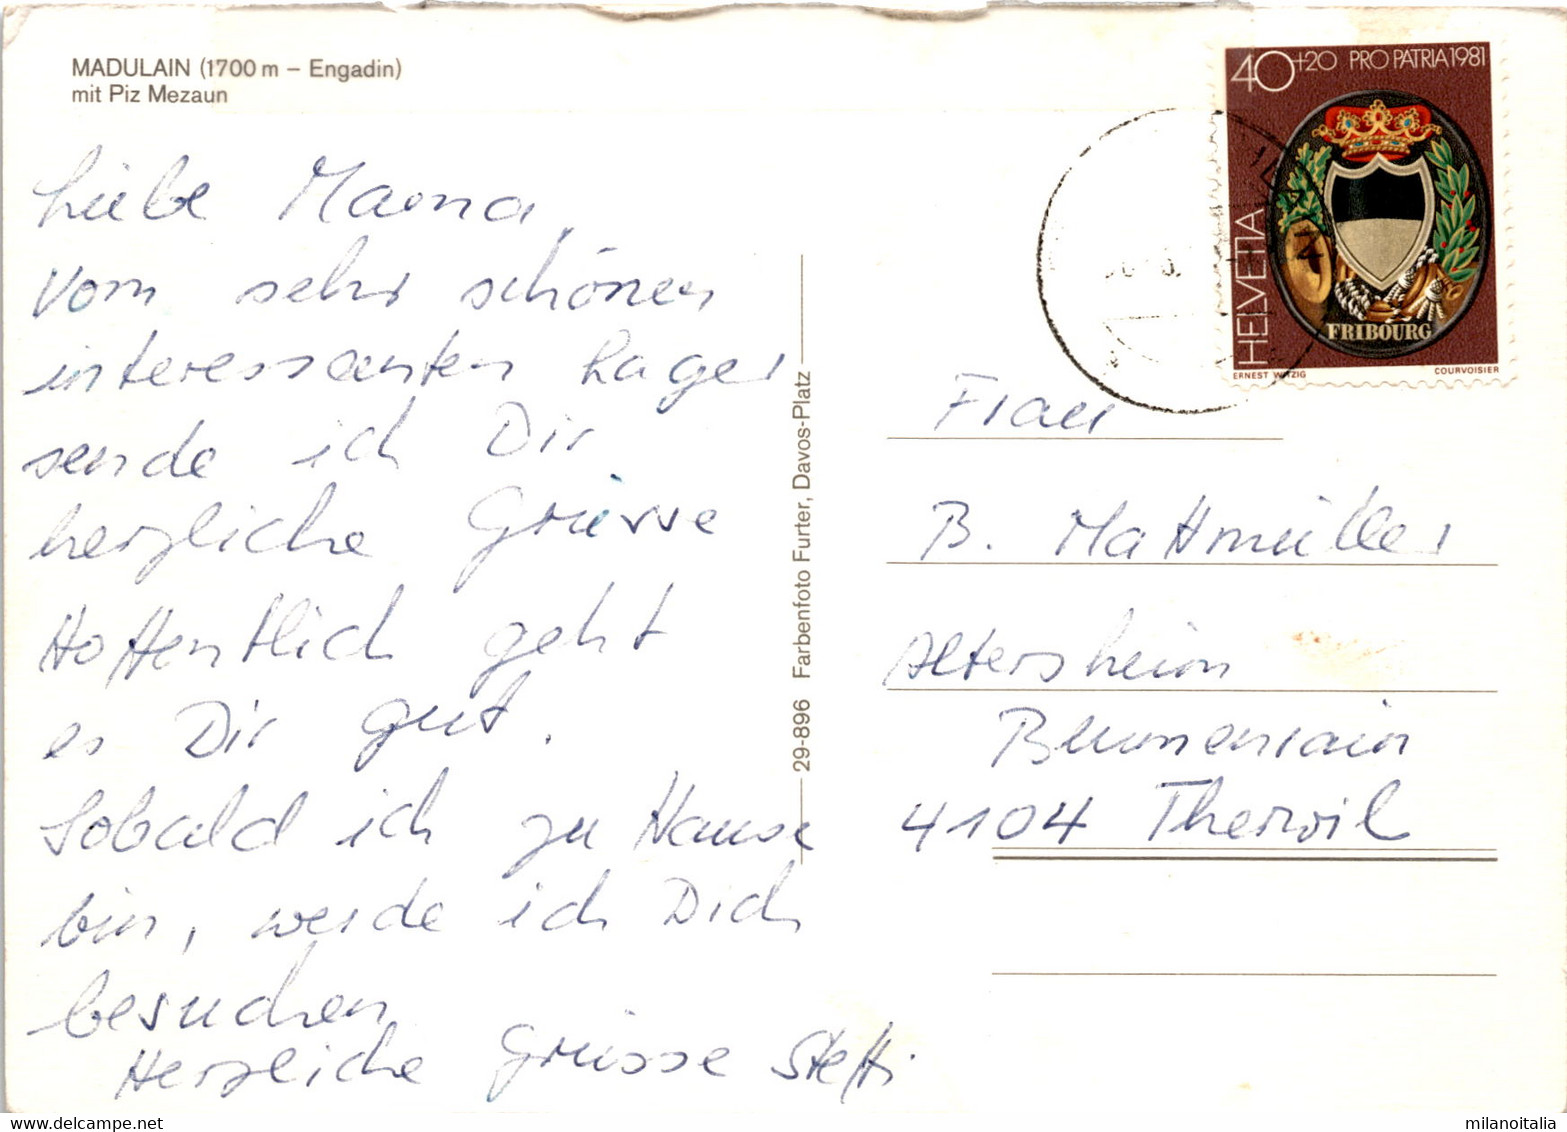 MADULAIN (1700 m – Engadin)
mit Piz Mezaun
Liebe Mama,
Vom sehr schönen
interessanten Lager
sende ich Dir
herzliche Grüsse
Hoffentlich geht
es Dir gut.
Sobald ich zu Hause
bin, werde ich Dich
besuchen
Herzliche Grüsse Steffi
29-896 Farbenfoto Furter, Davos-Platz
40+20 PRO PATRIA 1981
HELVETIA
FRIBOURG
ERNEST WITZIG COURVOISIER
Frau
B. Mattmüller
Altersheim
Blumenrain
4104 Therwil
milanoitalia